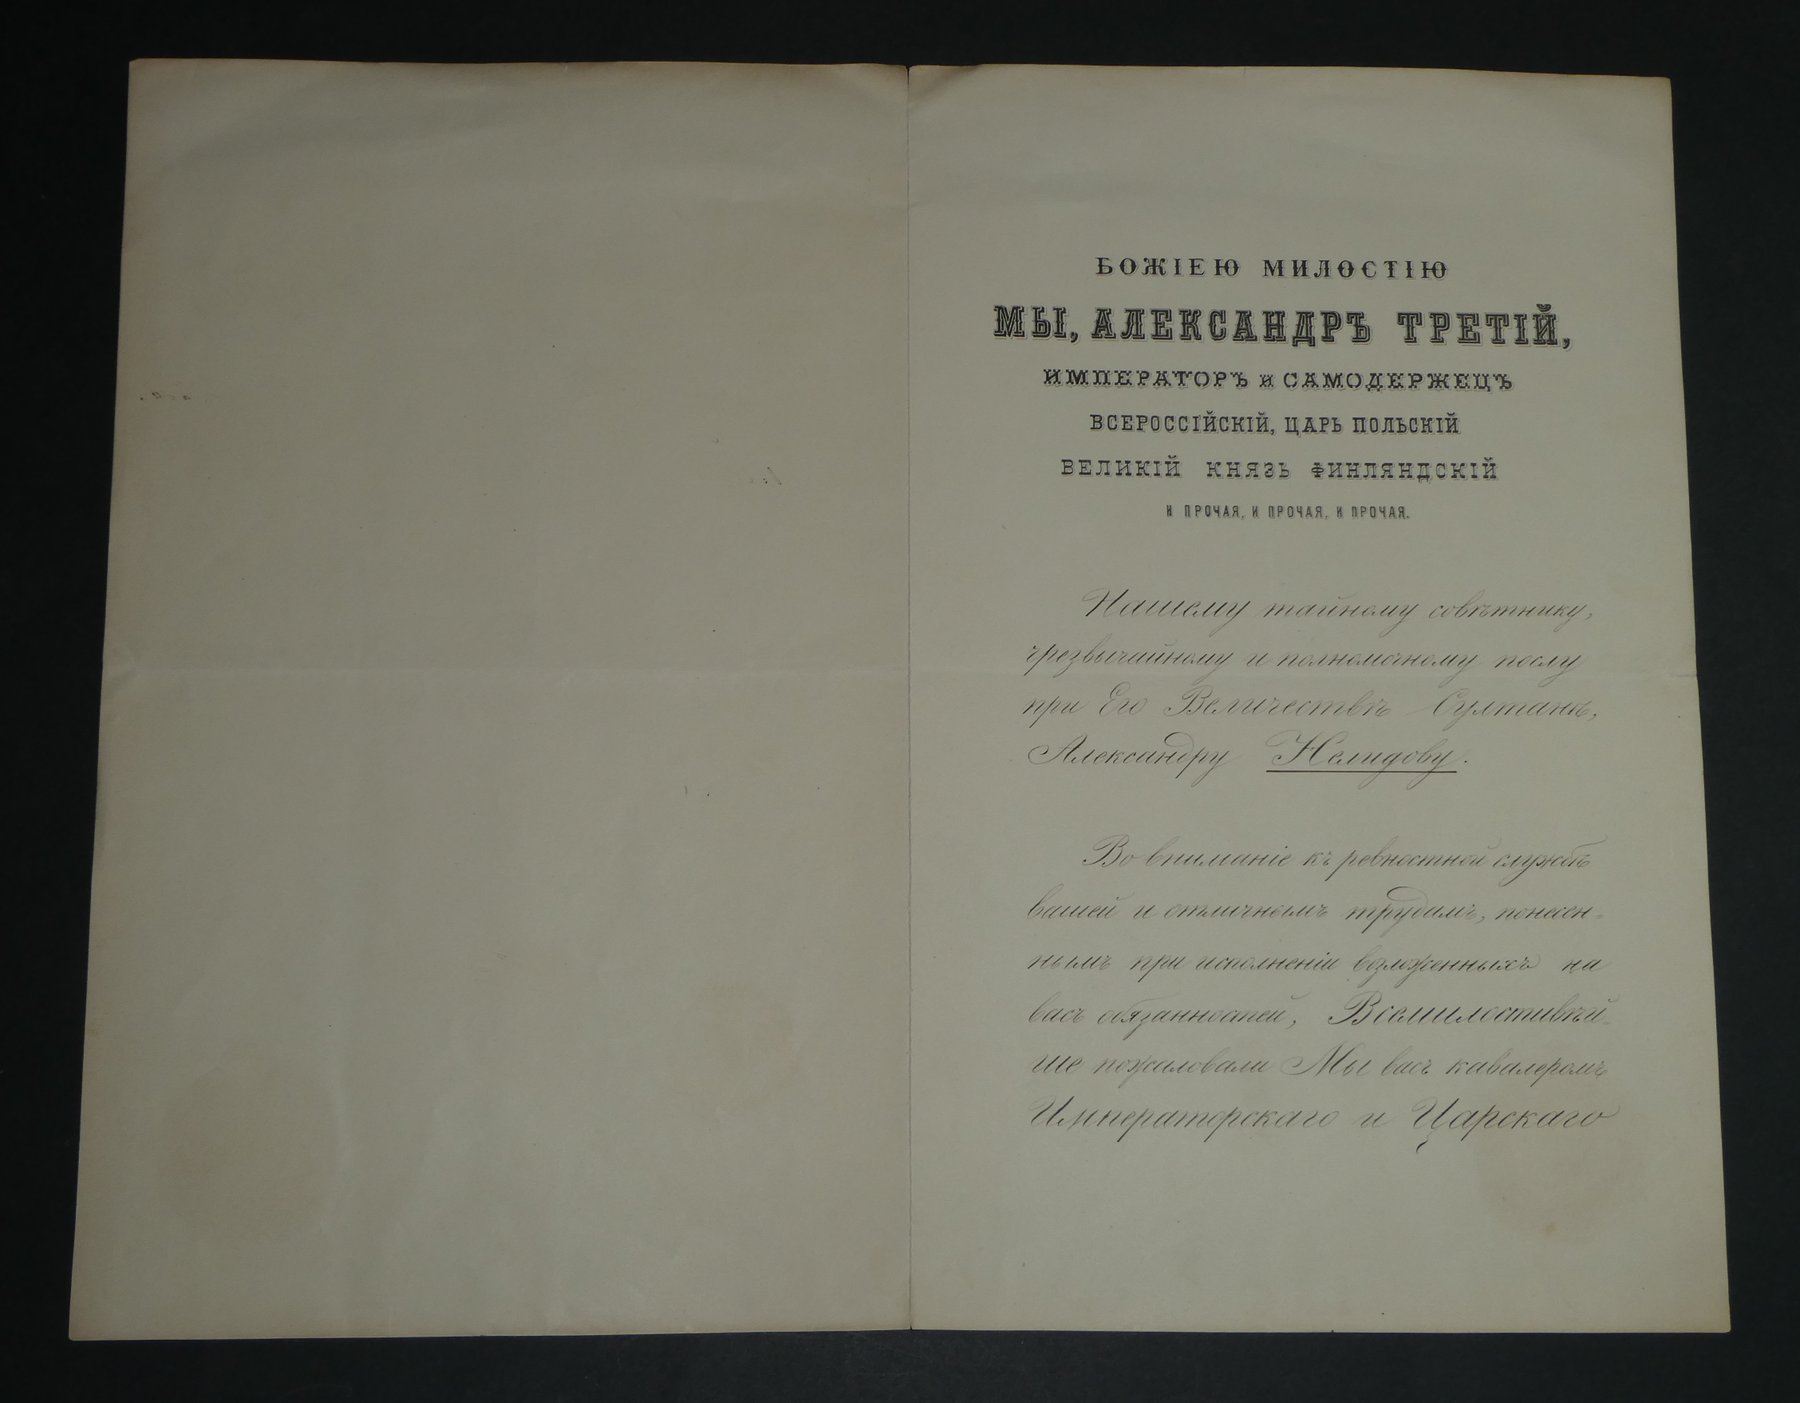 БОЖІЕЮ МИЛОСТІЮ
МЫ, АЛЕКСАНДРЪ ТРЕТІЙ,
ИМПЕРАТОРЪ и САМОДЕРЖЕЦЪ
ВСЕРОССІЙСКІЙ, ЦАРЬ ПОЛЬСКІЙ
ВЕЛИКІЙ КНЯЗЬ ФИНЛЯНДСКІЙ
И ПРОЧАЯ, И ПРОЧАЯ, И ПРОЧАЯ.
Нашему тайному совѣтнику,
чрезвычайному и полномочному послу
при Его Величествѣ Султанѣ,
Александру Нелидову.
Во вниманіе къ ревностной службѣ
вашей и отличнымъ трудамъ, понесен-
нымъ при исполненіи возложенныхъ на
васъ обязанностей, Всемилостивѣй-
ше пожаловали Мы васъ кавалеромъ
Императорскаго и Царскаго